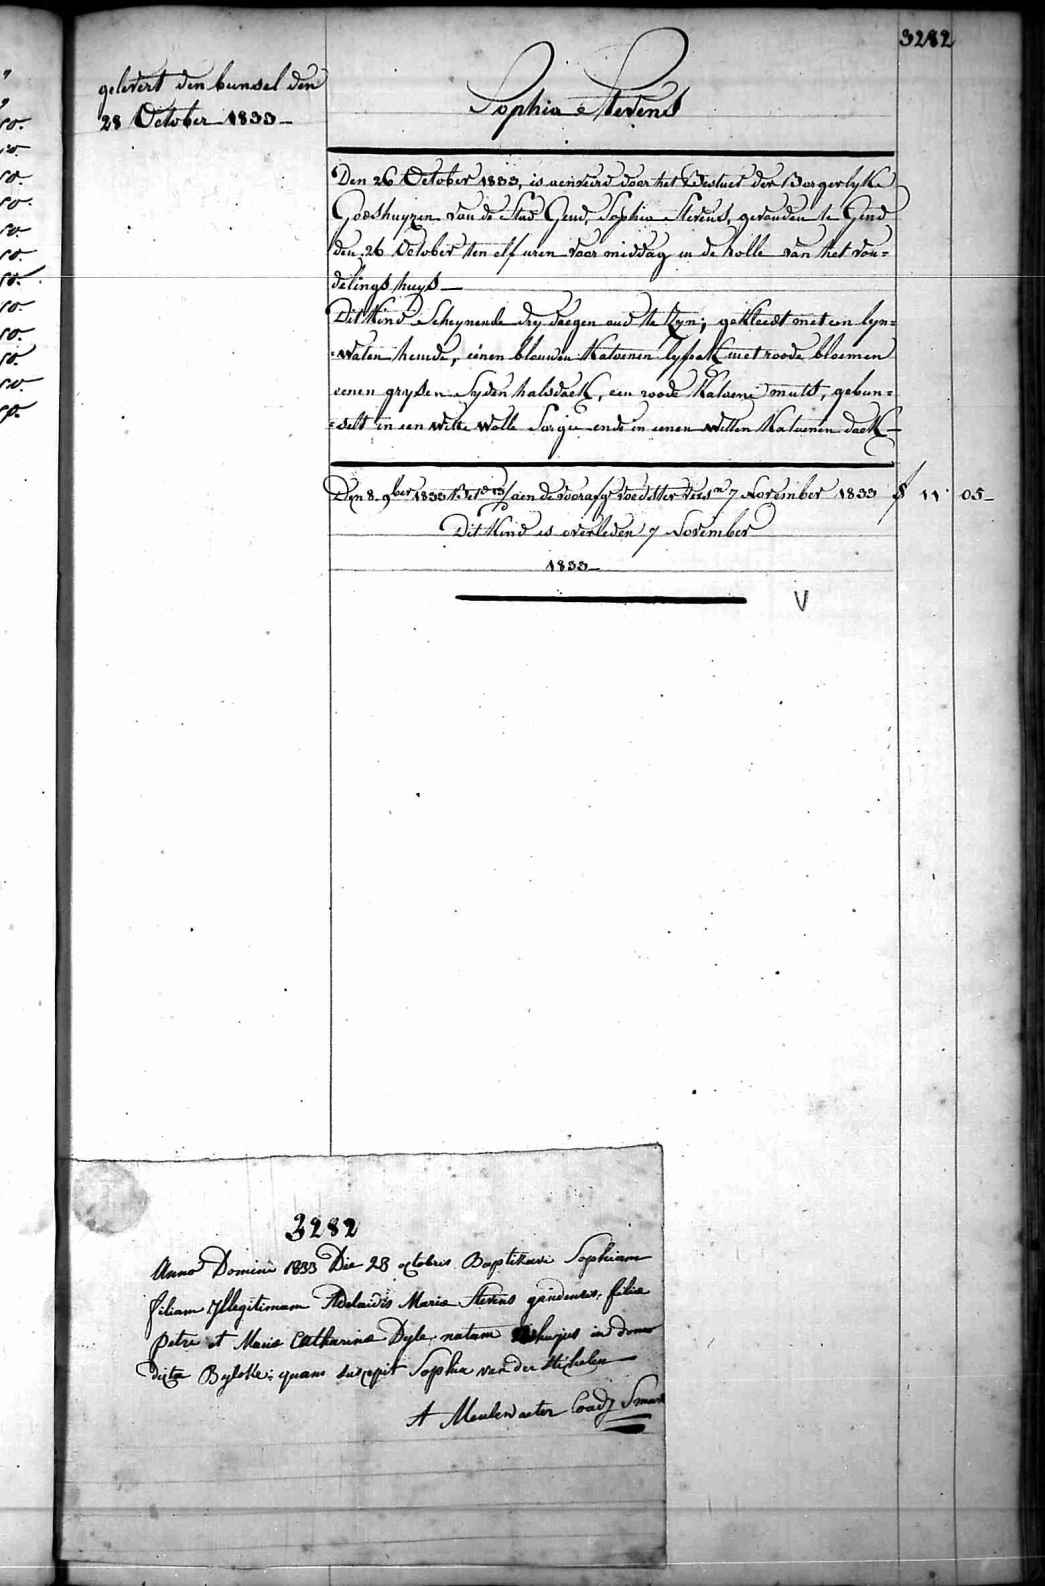 3282
gelevert den bunsel den
28 October 1833 _
Sophia Stevens
Den 26 October 1833, is aenveird door het Bestuer der Borgerlyke
Godshuyzen van de Stad Gend, Sophia Stevens, gevonden te Gend
den 26 October ten elf uren voor middag in de rolle van het von=
delings huys _
Dit Kind Scheynende dry daegen oud te Zyn; gekleedt met een lyn=
=waten hemde, eenen blauwen Katoenen lyfrok met roode bloemen
eenen grysen Syden halsdoek, een roode Katoene muts, gebun=
=selt in een witte wolle Sargie ende in eenen witten Katoenen doek _
Den 8. 9ber 1833 aen de voedster 7 November 1833 11 05 _
Dit Kind is overleden 7 November
1833 _
V
3282
Anno Domini 1833 Die 28 octobris Baptizavi Sophiam
filiam Illegitimam Adelaidis Maria Stevens gandensis, filia
Petri et Maria Catharina Dyle, natam hujus in domo
dicta Byloke: quam suscepit Sophia van der Stichelen
A Meulewaeter Coadj